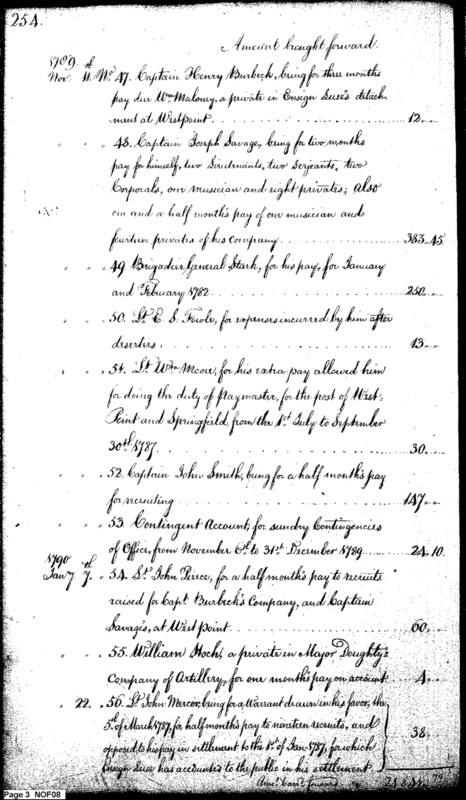 254.
Amount brought forward.
1789. th
Nov. 11. No 47. Captain Henry Burbeck, being for three months
pay due Wm Malony, a private in Ensign Luse's detach
ment at Westpoint 12
" " " 48. Captain Joseph Savage, being for two months
pay for himself, two Lieutenants, two Serjeants, two
Corporals, one musician and eight privates; also
one and a half month's pay of one musician and
fourteen privates of his company 383.45
" " " 49 Brigadier General Stark, for his pay, for January
and February 1782 250
" " " 50. Lt. E. S. Fowle, for expenses incurred by him after
deserters 13
" " " 51. Lt. Wm Moore, for his extra pay allowed him
for doing the duty of Paymaster, for the post of West-
Point and Springfield, from the 1st July to September
30th 1787. 30
" " " 52. Captain John Smith, being for a half month's pay
for recruiting 147
" " " 53. Contingent Account, for sundry Contingencies
of Office, from November 6th to 31st December 1789 24.10
1790 th
Jany 7. " 54. Lt. John Pierce, for a half month's pay to recruits
raised for Capt. Burbeck's Company, and Captain
Savage's, at West point 60
" " " 55. William Hock, a private in Major Doughty's
Company of Artillery, for one month's pay on account 4
" 22. " 56. Lt. John Mercer, being for a Warrant drawn in his favor, the
5th of March 1787, for half month's pay to nineteen recruits, and
opposed to his pay in settlement to the 1st of Jany 1787, for which
Ensign Luse has accounted to the public in his settlement. 38
Amo. Car'd forward
Page 3 NOF08